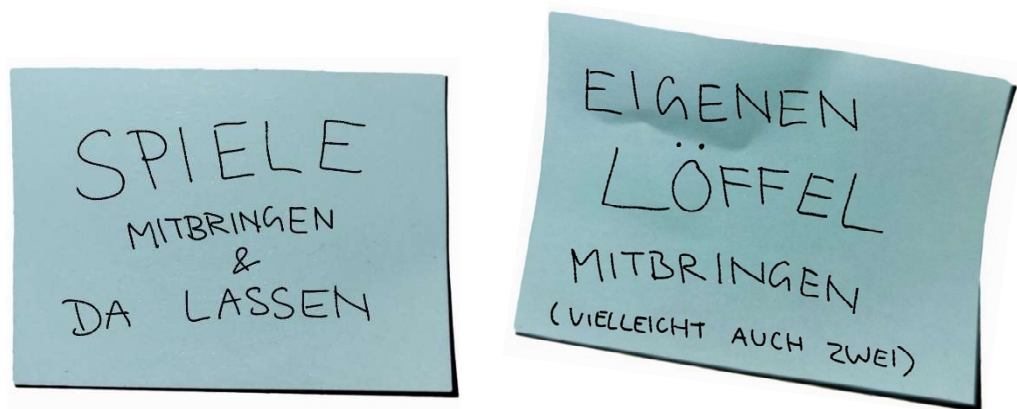 SPIELE
MITBRINGEN
&
DA LASSEN
EIGENEN
LÖFFEL
MITBRINGEN
(VIELLEICHT AUCH ZWEI)